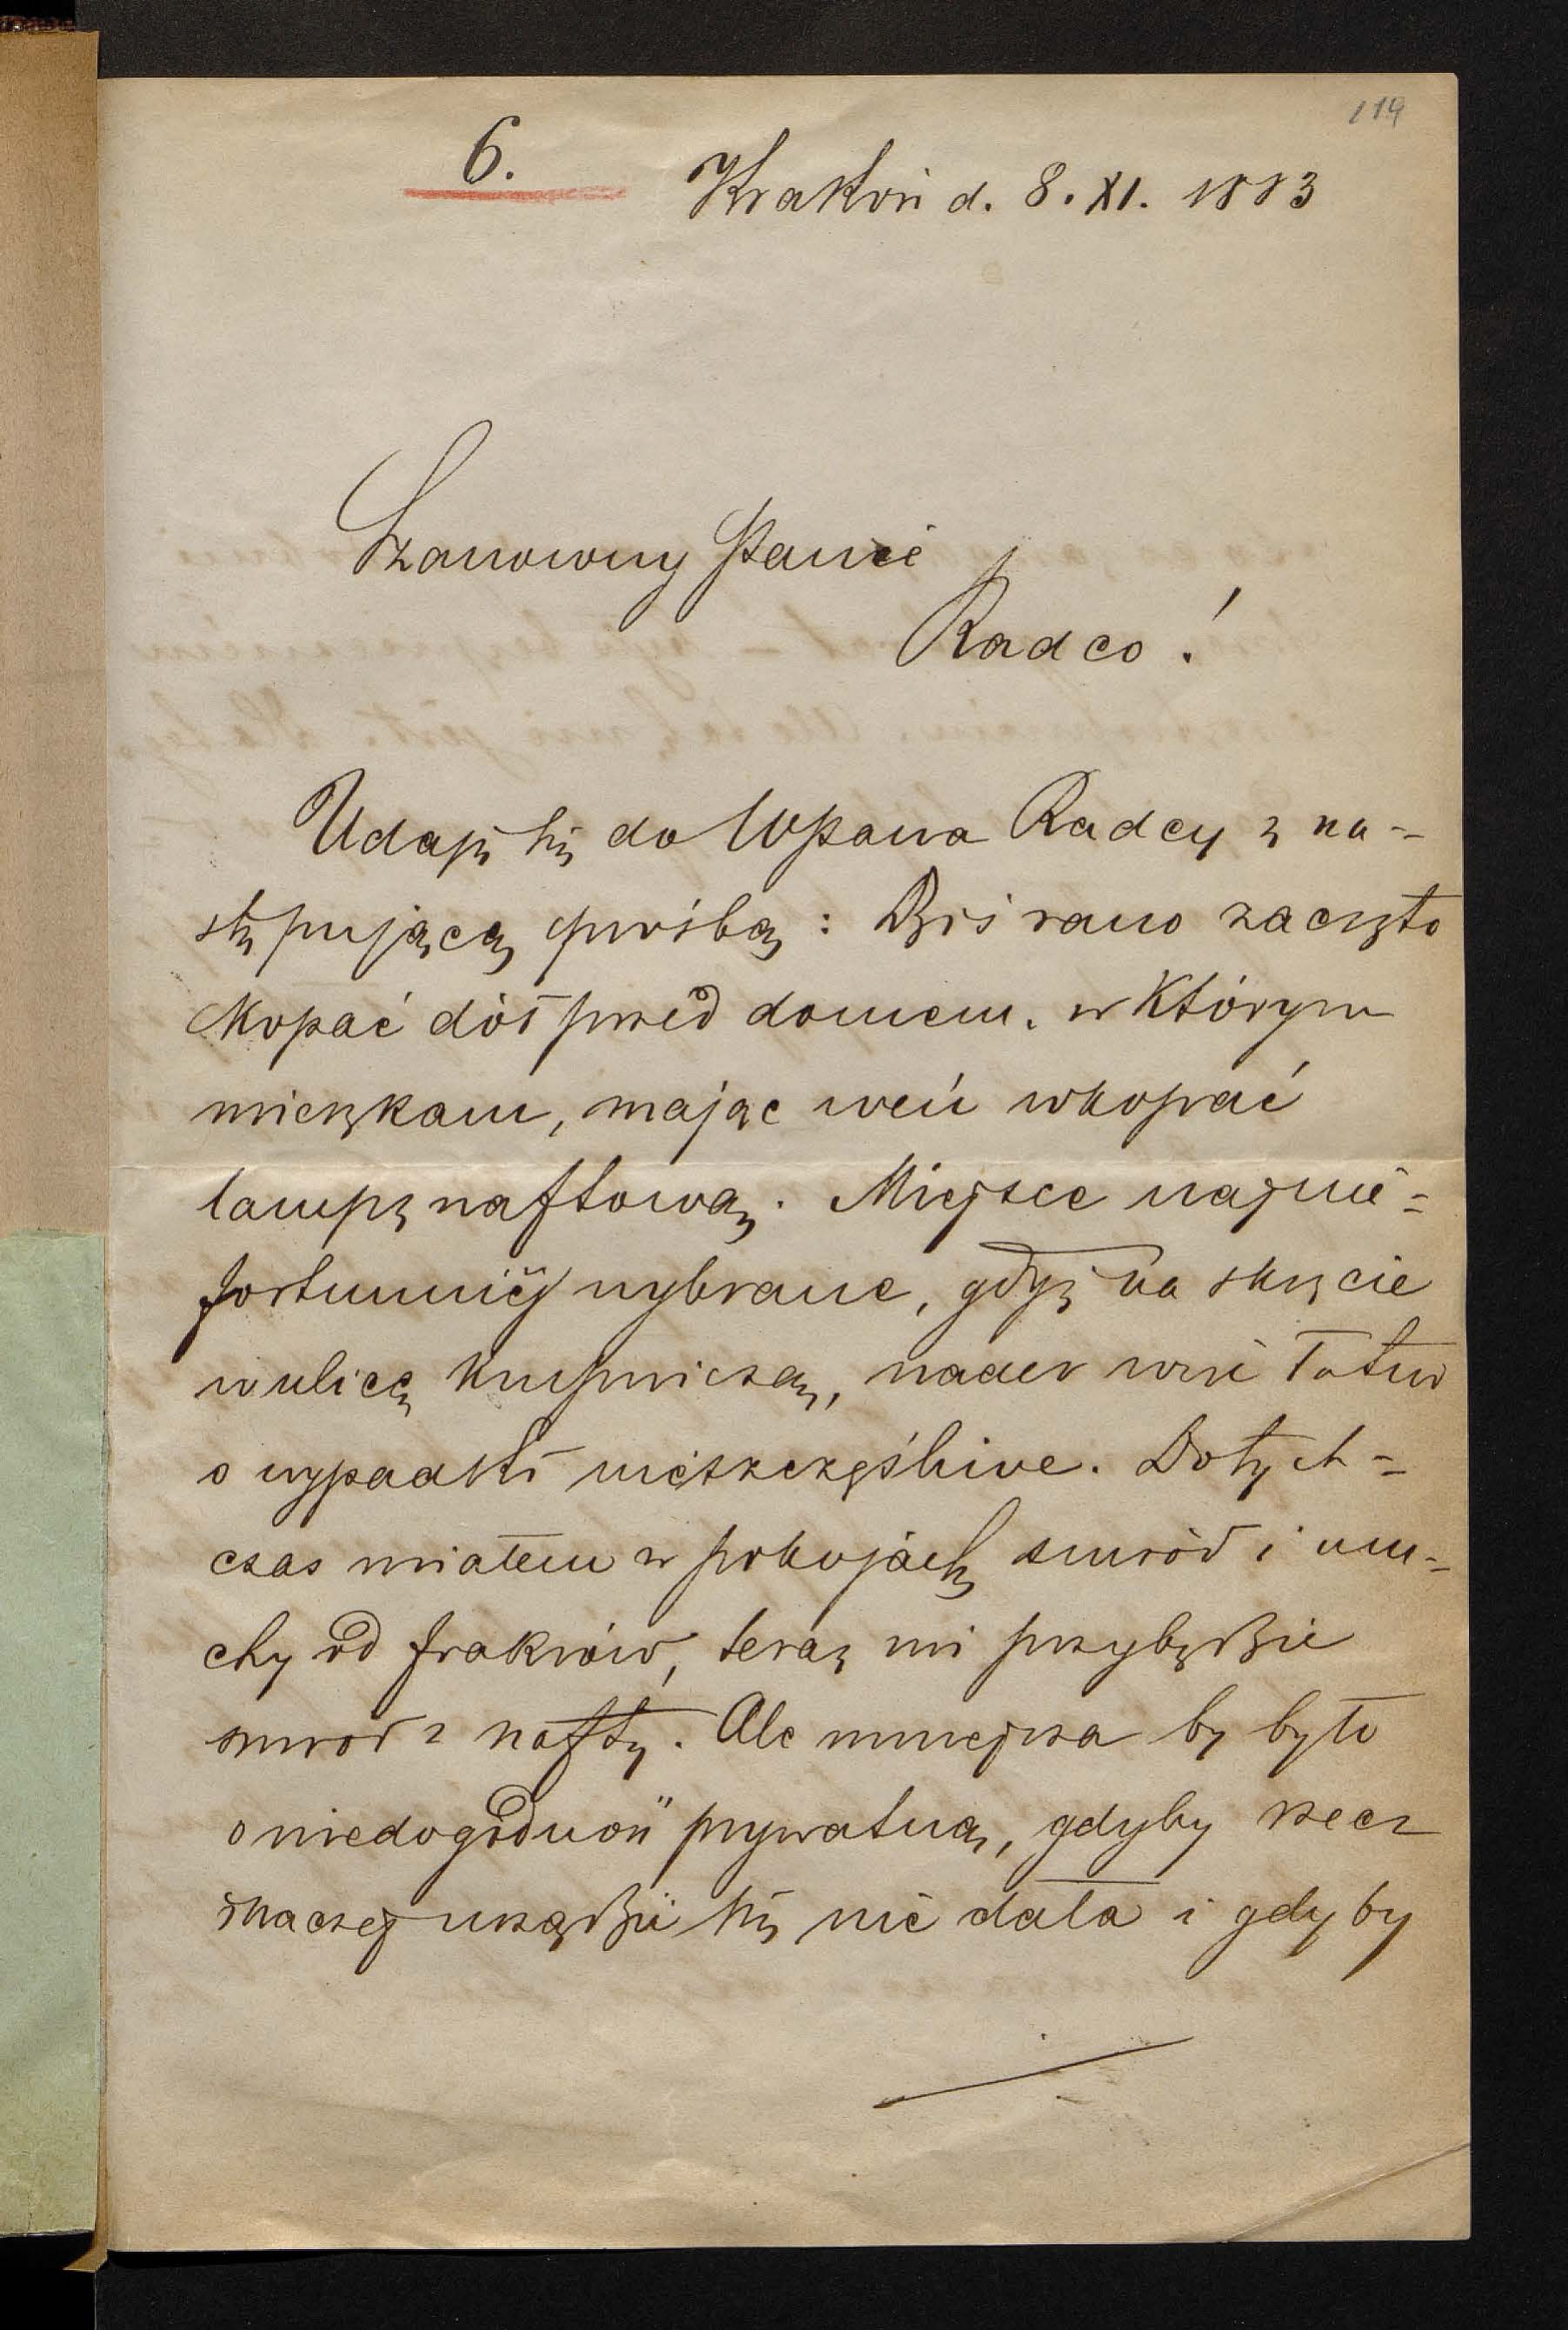 119
6.
Kraków d. 8. XI. 1883
Szanowny Panie
Radco!
Udaję się do WPana Radcy z na-
stępującą prośbą: Dziś rano zaczęto
kopać dół przed domem, w którym
mieszkam, mając weń wkopać
lampę naftową. Miejsce najnie-
fortunniéj wybrane, gdyż na skręcie
w ulicę Krupniczą, nader więc łatwo
o wypadki nieszczęśliwe. Dotych-
czas miałem w pokojach smród i mu-
chy od fiakrów, teraz mi przybędzie
smród z nafty. Ale mniejsza by było
o niedogodność prywatną, gdyby rzecz
inaczej urządzić się nie dała i gdyby